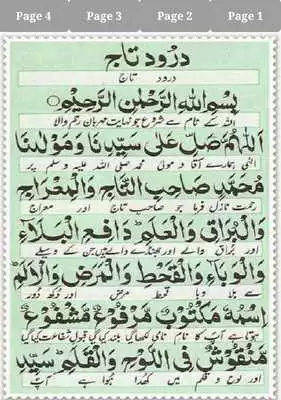 Page 4 Page 3 Page 2 Page 1
درود تاج
درود تاج
بِسْمِ اللهِ الرَّحْمٰنِ الرَّحِيْمِ
اللہ کے نام سے شروع جو نہایت مہربان رحم والا
اَللّٰهُمَّ صَلِّ عَلٰى سَيِّدِنَا وَمَوْلٰىنَا
الٰہی ہمارے آقا و مولیٰ محمد صلی اللہ علیہ وسلم پر
مُحَمَّدٍ صَاحِبِ التَّاجِ وَالْمِعْرَاجِ
رحمت نازل فرما جو صاحب تاج اور معراج
وَالْبُرَاقِ وَالْعَلَمِ دَافِعِ الْبَلَاءِ
اور براق والے اور جھنڈے والے ہیں جن کے وسیلے
وَالْوَبَاءِ وَالْقَحْطِ وَالْمَرَضِ وَالْاَلَمِ
سے بلا وبا قحط مرض اور دکھ دور
اِسْمُهٗ مَكْتُوْبٌ مَّرْفُوْعٌ مَّشْفُوْعٌ
ہوتا ہے آپ کا نام نامی لکھا گیا بلند کیا گیا قبول شفاعت کیا گیا
مَّنْقُوْشٌ فِى اللَّوْحِ وَالْقَلَمِ سَيِّدِ
اور لوح و قلم میں کھدا ہوا ہے آپ